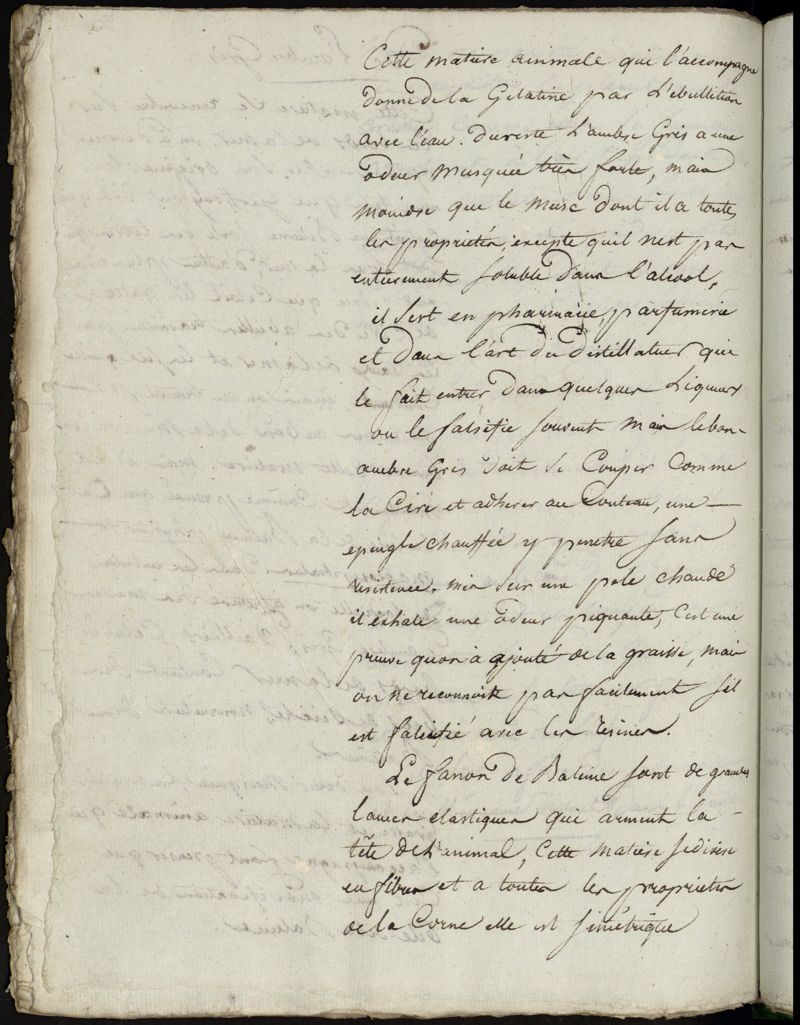 Cette matiere animale qui l'accompagne
donne de la Gelatine par L'ebullition
avec l'eau. du reste L'ambre Gris a une
odeur musquée très forte, mais
moindre que le musc dont il a toutes
les proprietés, excepté qu'il n'est pas
entierement soluble dans l'alcool,
il sert en pharmacie, parfumerie
et Dans l'art du distillateur qui
le fait entrer dans quelques Liqueurs
on le falsifie souvent mais le bon
ambre Gris doit se Couper Comme
la Cire et adherer au Couteau, une
epingle chauffée y penetre sans
resistence. mis sur une pele chaude
il exhale une odeur piquante, C'est une
preuve qu'on a ajouté de la graisse, mais
on ne reconnoit pas facilement s'il
est falsifié avec les resines.
Le fanon de Baleine sont de grandes
lames elastiques qui arment la
tête de L'animal, Cette matiere se divise
en fibres et a toutes les proprietés
de la Corne elle est simétrique